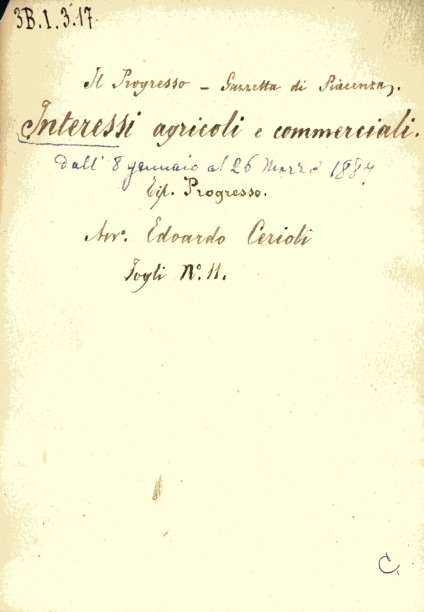 3B.1.3.17
Il Progresso - Gazzetta di Piacenza.
Interessi agricoli e commerciali.
Dall' 8 gennaio al 26 Marzo 1887
Tip. Progresso.
Avv.o Edoardo Cerioli
Fogli N.o 11.
C.